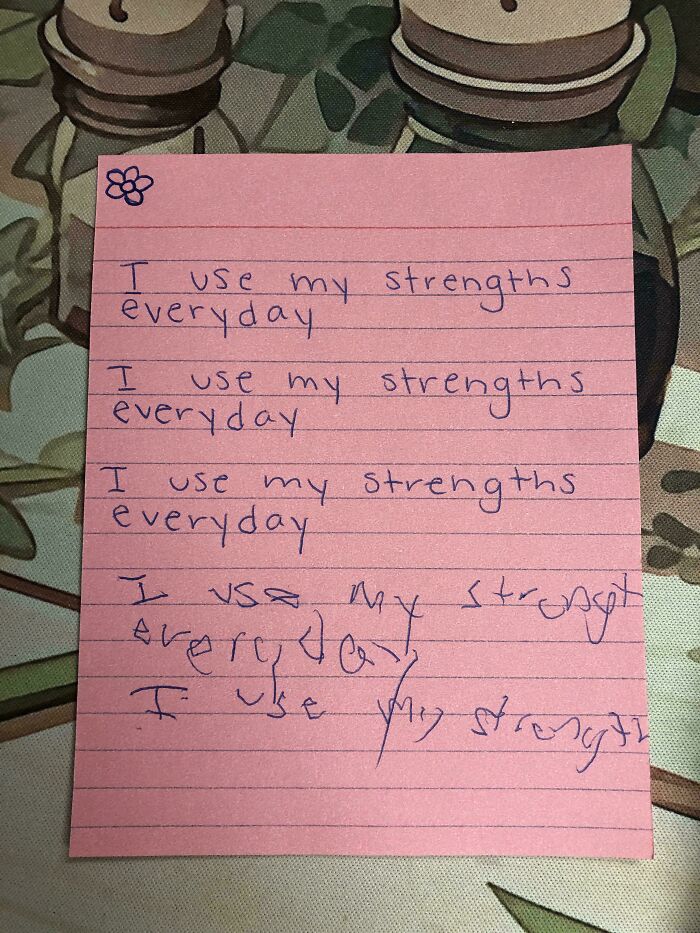 I use my strengths
everyday
I use my strengths
everyday
I use my strengths
everyday
I use my strengt
everyday
I use my strength